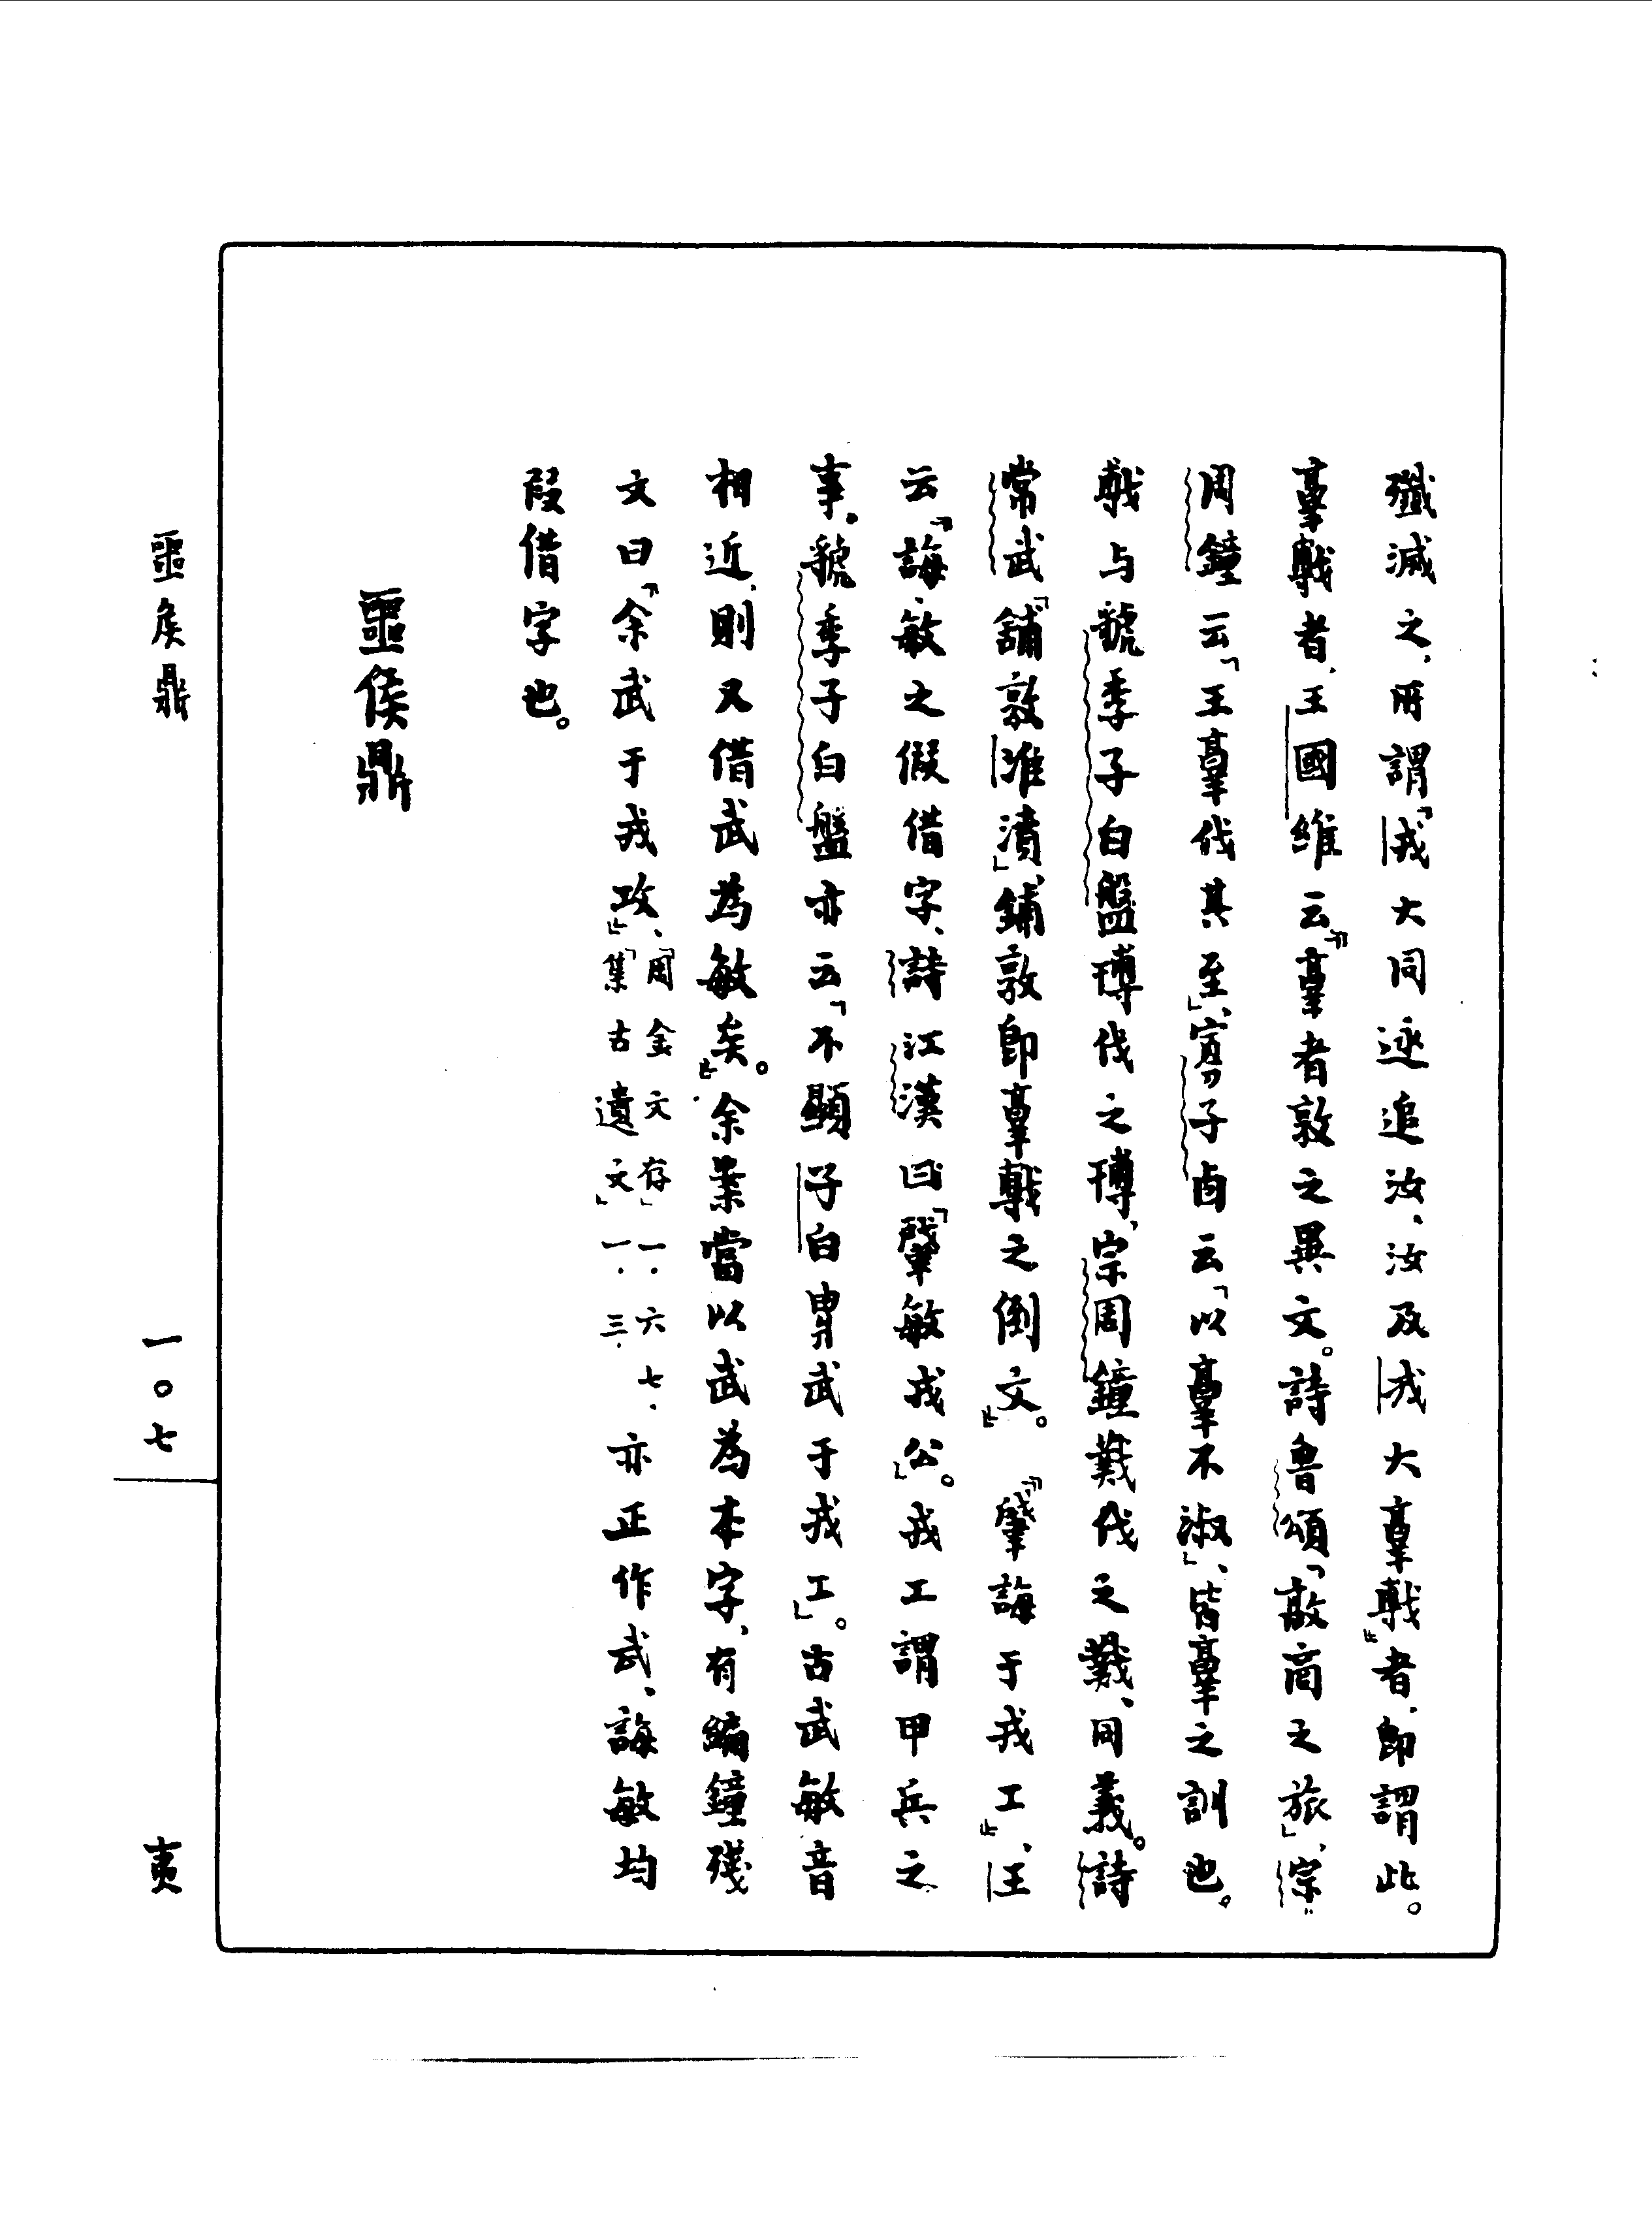 殲滅之，所謂「戎大同逑追汝，汝及戎大𦎫戟」者，即謂此。
𦎫戟者，王國維云：「𦎫者敦之異文。詩魯頌『敦商之旅』、宗
周鐘云『王𦎫伐其至』、寡子卣云『以𦎫不淑』、皆𦎫之訓也。
戟与虢季子白盤搏伐之搏，宗周鐘䵼伐之䵼、同義。詩
常武『鋪敦淮濆』，鋪敦即𦎫戟之倒文。」「肇誨于戎工」、王
云「誨，敏之假借字，詩江漢曰『肇敏戎公』。戎工謂甲兵之
事。虢季子白盤亦云『不顯子白𩊄武于戎工』。古武敏音
相近，則又借武為敏矣。」余案當以武為本字，有編鐘殘
文曰「余武于戎攻」，「周金文存」一．六七．「集古遺文」一．三．亦正作武，誨敏均
叚借字也。
噩侯鼎
噩侯鼎
一〇七
夷